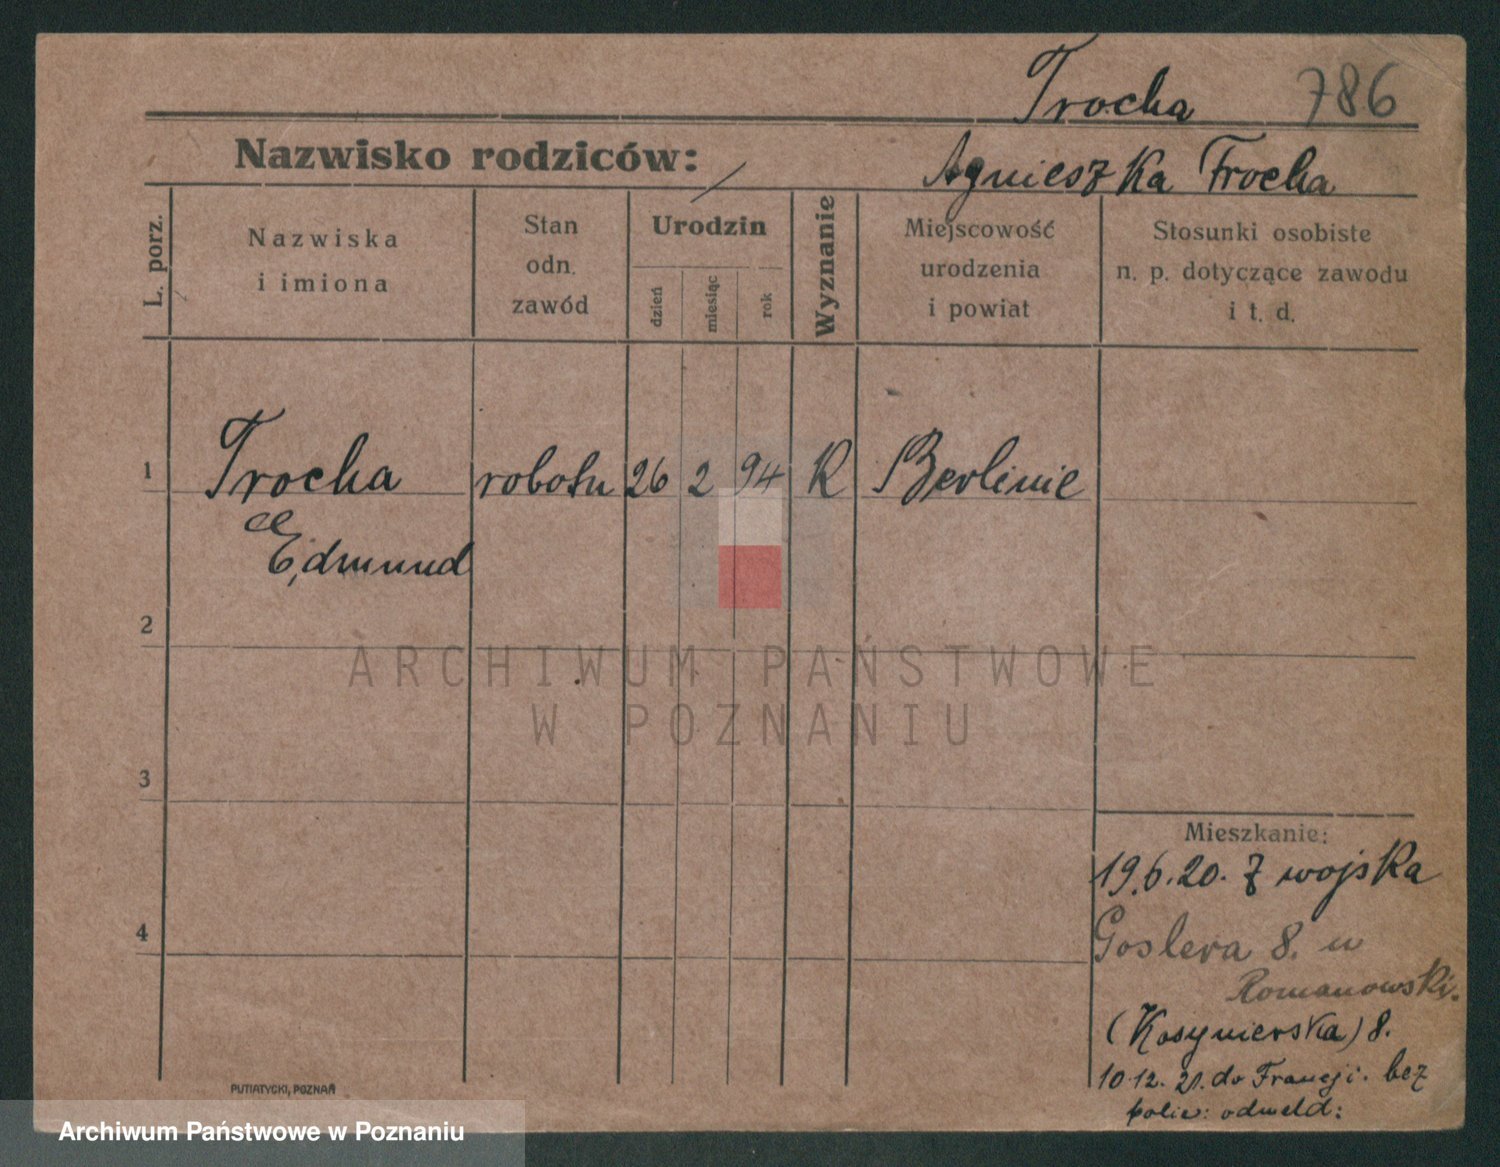 Trocha 786
Nazwisko rodziców: / Agnieszka Trocha
L. porz.
Nazwiska
i imiona
Stan
odn.
zawód
Urodzin
dzień
miesiąc
rok
Wyznanie
Miejscowość
urodzenia
i powiat
Stosunki osobiste
n. p. dotyczące zawodu
i t. d.
1 Trocha robotn 26 2 94 K Berlinie
Edmund
2
ARCHIWUM PAŃSTWOWE
W POZNANIU
3
Mieszkanie:
19.6.20. z wojska
4
Goslera 8. u
Romanowski.
(Kosynierska) 8.
10.12.21. do Francji. bez
polic: odmeld:
PUTIATYCKI, POZNAŃ
Archiwum Państwowe w Poznaniu